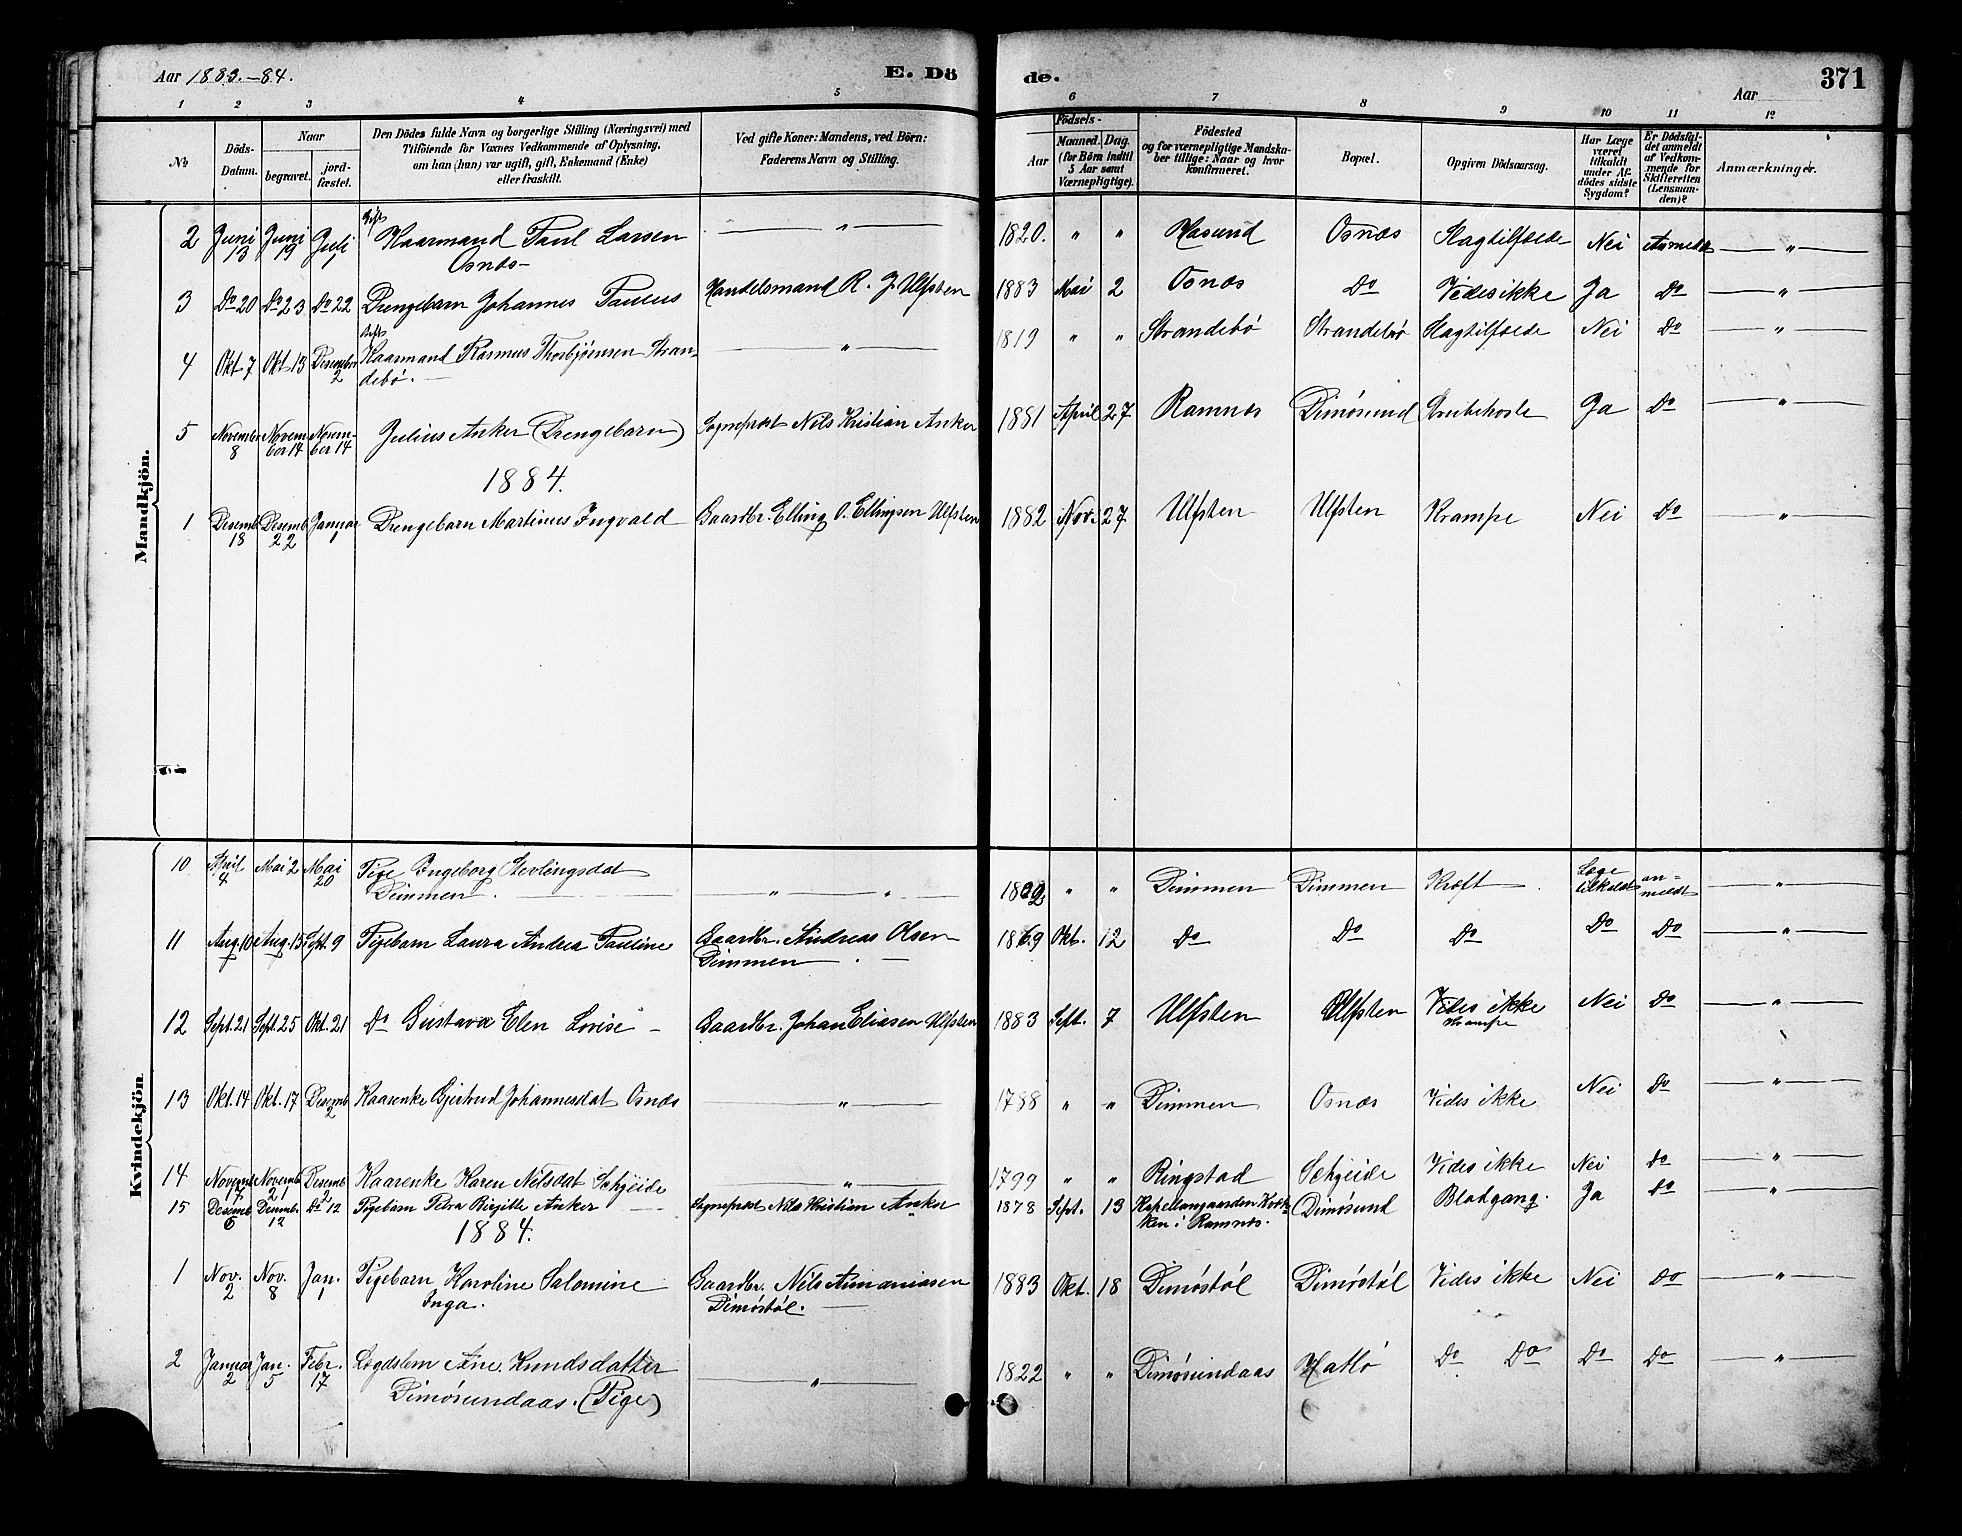 Aar 1883.-84.
E. Dö
de.
Aar
371
1 2 3 4 5 6 7 8 9 10 11 12
No
Döds-Datum.
Naar
begravet.
jord-fæstet.
Den Dödes fulde Navn og borgerlige Stilling (Næringsvei) med
Tilföiende for Voxnes Vedkommende af Oplysning,
om han (hun) var ugift, gift, Enkemand (Enke)
eller fraskilt.
Ved gifte Koner: Mandens, ved Börn:
Faderens Navn og Stilling.
Födsels-
Aar
Maaned. Dag.
(for Börn indtil
5 Aar samt
Værnepligtige).
Födested
og for værnepligtige Mandska-
ber tillige: Naar og hvor
konfirmeret.
Bopæl.
Opgiven Dödsaarsag.
Har Læge
været
tilkaldt
under Af-
dödes sidste
Sygdom?
Er Dödsfal-
det anmeldt
af Vedkom-
mende for
Skifteretten
(Lensman-
den)?
Anmærkninger.
Mandkjön.
2 Juni 13 Juni 19 Juli 1 Gift Kaarmand Paul Larsen Osnæs - " 1820. " " Hasund Osnæs Slagtilfælde Nei Anmeldt "
3 Do 20 Do 23 Do 22 Drengebarn Johannes Paulus Handelsmand R. J. Ulfsten 1883 Mai 2 Osnæs Do Vides ikke Ja Do "
4 Okt 7 Okt 13 Desember 2 Gift Kaarmand Rasmus Thorbjørnsen Stran-
debø. " 1819 " " Strandebø Strandebø Slagtilfælde Nei Do "
5 November 8 Novem-
ber 14 Novem-
ber 14 Julius Anker (Drengebarn) Sogneprest Nils Kristian Anker 1881 April 27 Ramnæs Dimøsund Strubehoste Ja Do "
1884.
1 Desemb. 18 Desemb. 22 Januar 1 Drengebarn Martinus Ingvald Gaardbr. Elling O. Ellingsen Ulfsten 1882 Nov. 27 Ulfsten Ulfsten Krampe Nei Do "
Kvindekjön
10 April 4 Mai 2 Mai 20 Pige Ingeborg Sevlingsdat
Dimmen. " " " " Dimmen Dimmen Kræft Læge tilkaldt an-
meldt "
11 Aug. 10 Aug. 15 Sept. 9 Pigebarn Laura Andrea Pauline Gaardbr. Andreas Olsen
Dimmen 1869 Okt. 12 Do Do Do Do Do "
12 Sept. 21 Sept. 25 Okt. 21 Do Gustava Elen Lovise - Gaardbr. Johan Eliasen Ulfsten 1883 Sept. 7 Ulfsten Ulfsten Vides ikke
Krampe Nei Do "
13 Okt. 14 Okt. 17 Desemb 2 Kaarenke Gjertrud Johannesdat Osnæs " 1788 " " Dimmen Osnæs Vides ikke Nei Do "
14 Novemb 7 Novemb. 21 Desemb 2 Kaarenke Karen Nilsdat Sæhjeide " 1799 " " Ringstad Sæhjeide Vides ikke Nei Do "
15 Desemb 6 Desemb. 12 Do 12 Pigebarn Petra Birgitte Anker Sogneprest Nils Kristian Anker 1878 Sept. 13 Kapellangaarden
i Ramnæs. Dimøsund Blodgang. Ja Do "
1884.
1 Nov. 2 Nov. 8 Jan. 1 Pigebarn Karoline Salomine
Inga. Gaardbr. Nils Ananiasen
Dimøstøl. 1883 Okt. 18 Dimøstøl Dimøstøl Vides ikke Nei Do "
2 Januar 2 Jan. 5 Febr. 17 Lægdslem Ane Knudsdatter
Dimøsundaas. (Pige) " 1822 " " Dimøsundaas Hatlø Do Do Do Do "